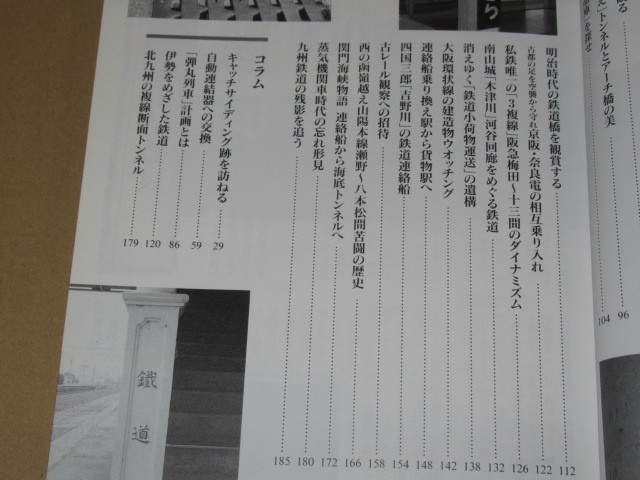 る
え」トンネルとアーチ橋の美
96
104
明治時代の鉄道橋を観賞する 112
古都の足を空襲から守れ 京阪・奈良電の相互乗り入れ 122
私鉄唯一の「3複線」阪急梅田～十三間のダイナミズム 126
南山城「木津川」河谷回廊をめぐる鉄道 132
消えゆく「鉄道小荷物運送」の遺構 138
大阪環状線の建造物ウオッチング 142
連絡船乗り換え駅から貨物駅へ 148
四国三郎「吉野川」の鉄道連絡船 154
古レール観察への招待 158
西の函嶺越え山陽本線瀬野～八本松間苦闘の歴史 166
関門海峡物語 連絡船から海底トンネルへ 172
蒸気機関車時代の忘れ形見 180
九州鉄道の残影を追う 185
コラム
キャッチサイディング跡を訪ねる 29
自動連結器への交換 59
「弾丸列車」計画とは 86
伊勢をめざした鉄道 120
北九州の複線断面トンネル 179
から
鐵道